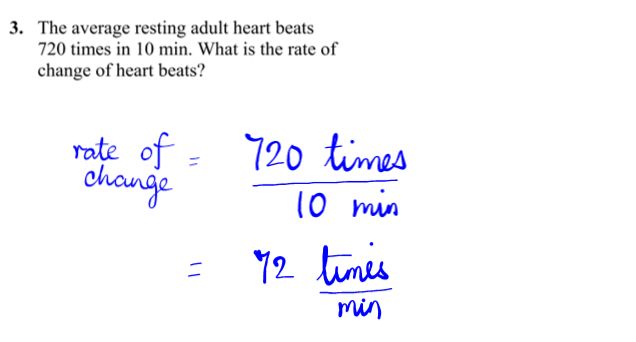 3. The average resting adult heart beats
720 times in 10 min. What is the rate of
change of heart beats?
rate of change = 720 times / 10 min
= 72 times / min